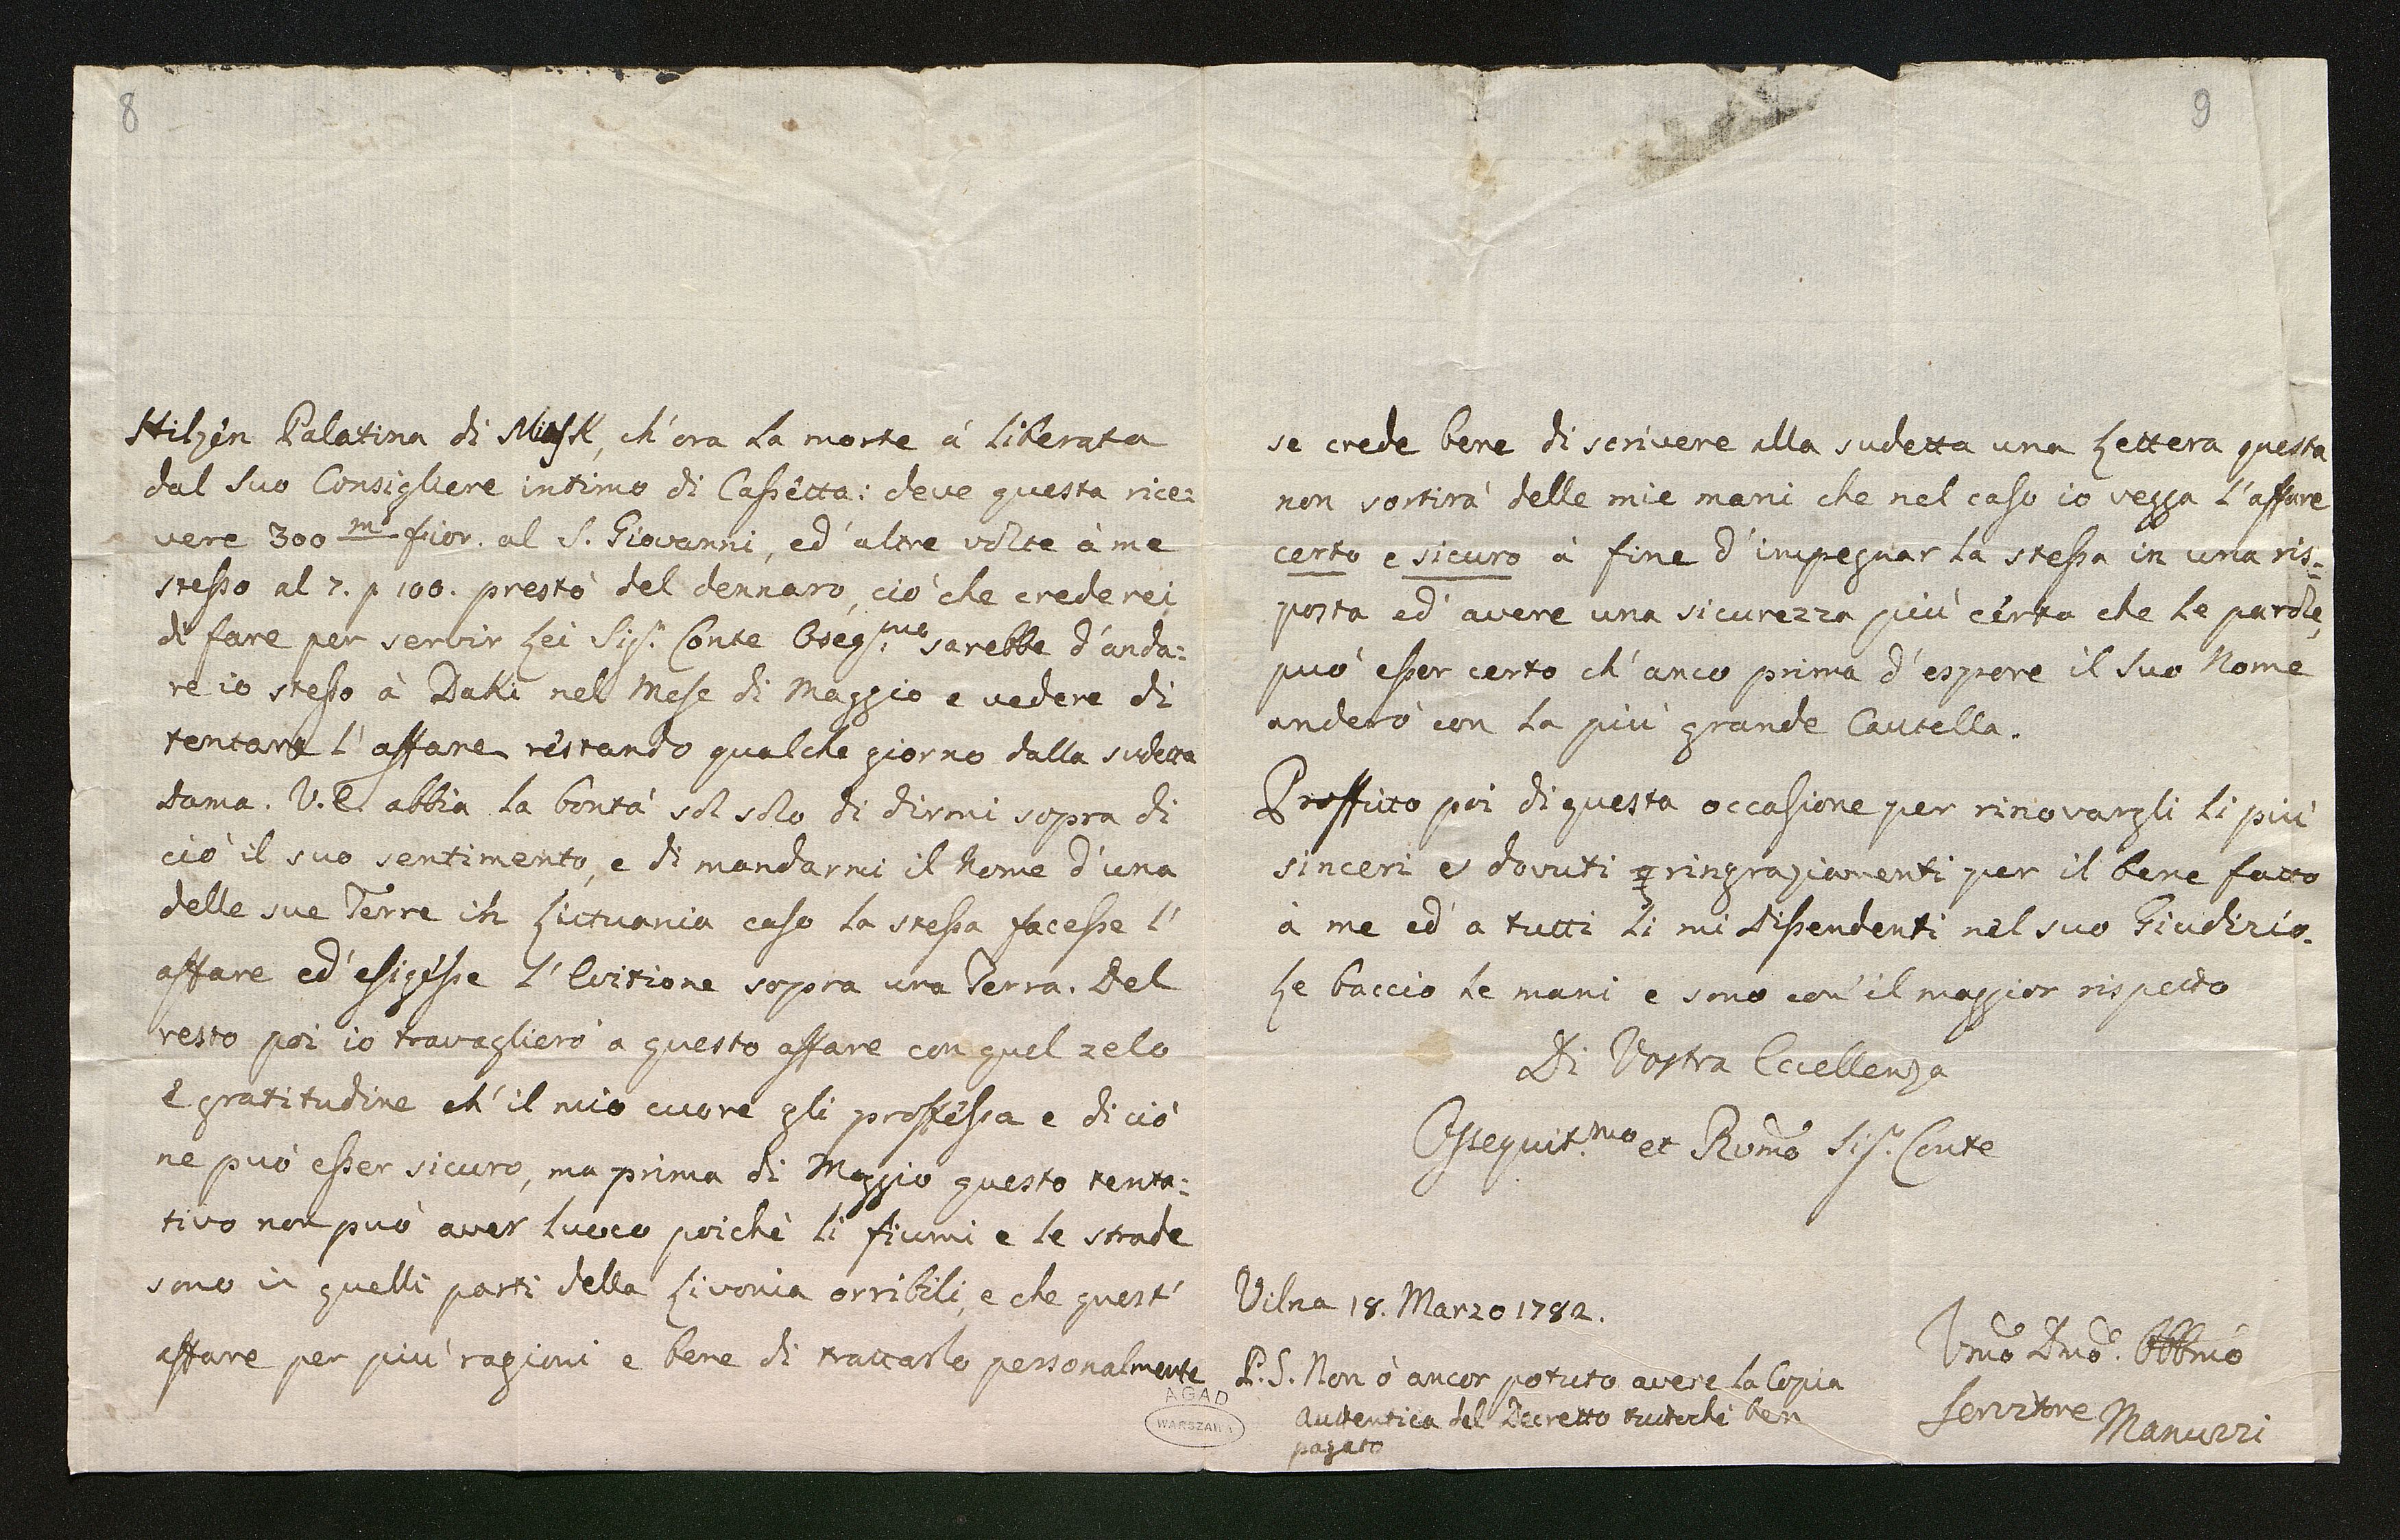 8
Hilzén Palatina di Minsk, ch'ora la morte á liberata
dal suo Consigliere intimo di Cassétta: deve questa rice:
vere 300 m fior. al S. Giovanni, ed'altre volte à me
stesso al 7. p 100. prestò del dennaro, ció che crederei
di fare per servir Lei Sigr. Conte Osseq:mo sarebbe d'anda:
re io stesso à Daki nel Mese di Maggio e vedere di
tentare l'affare restando qualche giorno dalla sudetta
Dama. V.E. abbia la bontá sol solo di dirmi sopra di
ció il suo sentimento, e di mandarmi il Nome d'una
delle sue Terre in Littuania caso la stessa facesse l'
affare ed'esigésse l'Evitione sopra una Terra. Del
resto poi io travaglieró a questo affare con quel zelo
e gratitudine ch'il mio cuore gli proffessa e di ció
ne puó esser sicuro, ma prima di Maggio questo tenta:
tivo non puó aver luoco poichè li fiumi e le strade
sono in quelli parti della Livonia orribili, e che quest'
affare per piú ragioni e bene di trattarlo personalmente
AGAD
WARSZAWA
9
se crede bene di scrivere alla sudetta una Lettera questa
non sortirá delle mie mani che nel caso io vegga l'affare
certo e sicuro à fine d'impegnar la stessa in una ris:
posta ed'avere una sicurezza piú cérta che le parole,
puó esser certo ch'anco prima d'espore il suo Nome
anderó con la piú grande Cautella.
Proffitto poi di questa occasione per rinovargli li piú
sinceri e dovuti ringraziamenti per il bene fatto
à me ed'a tutti li mi dispendenti nel suo Giudizio.
Le baccio le mani e sono con'il maggior rispetto
Di Vostra Eccellenza
Ossequit.mo et Rvmo Sigr. Conte
Vilna 18. Marzo 1782.
P.S. Non ó ancor potuto avere la Copia
autentica del Decretto tuttoché ben
pagato
Vmo Dmo. Obbmo
Servitore Manuzzi